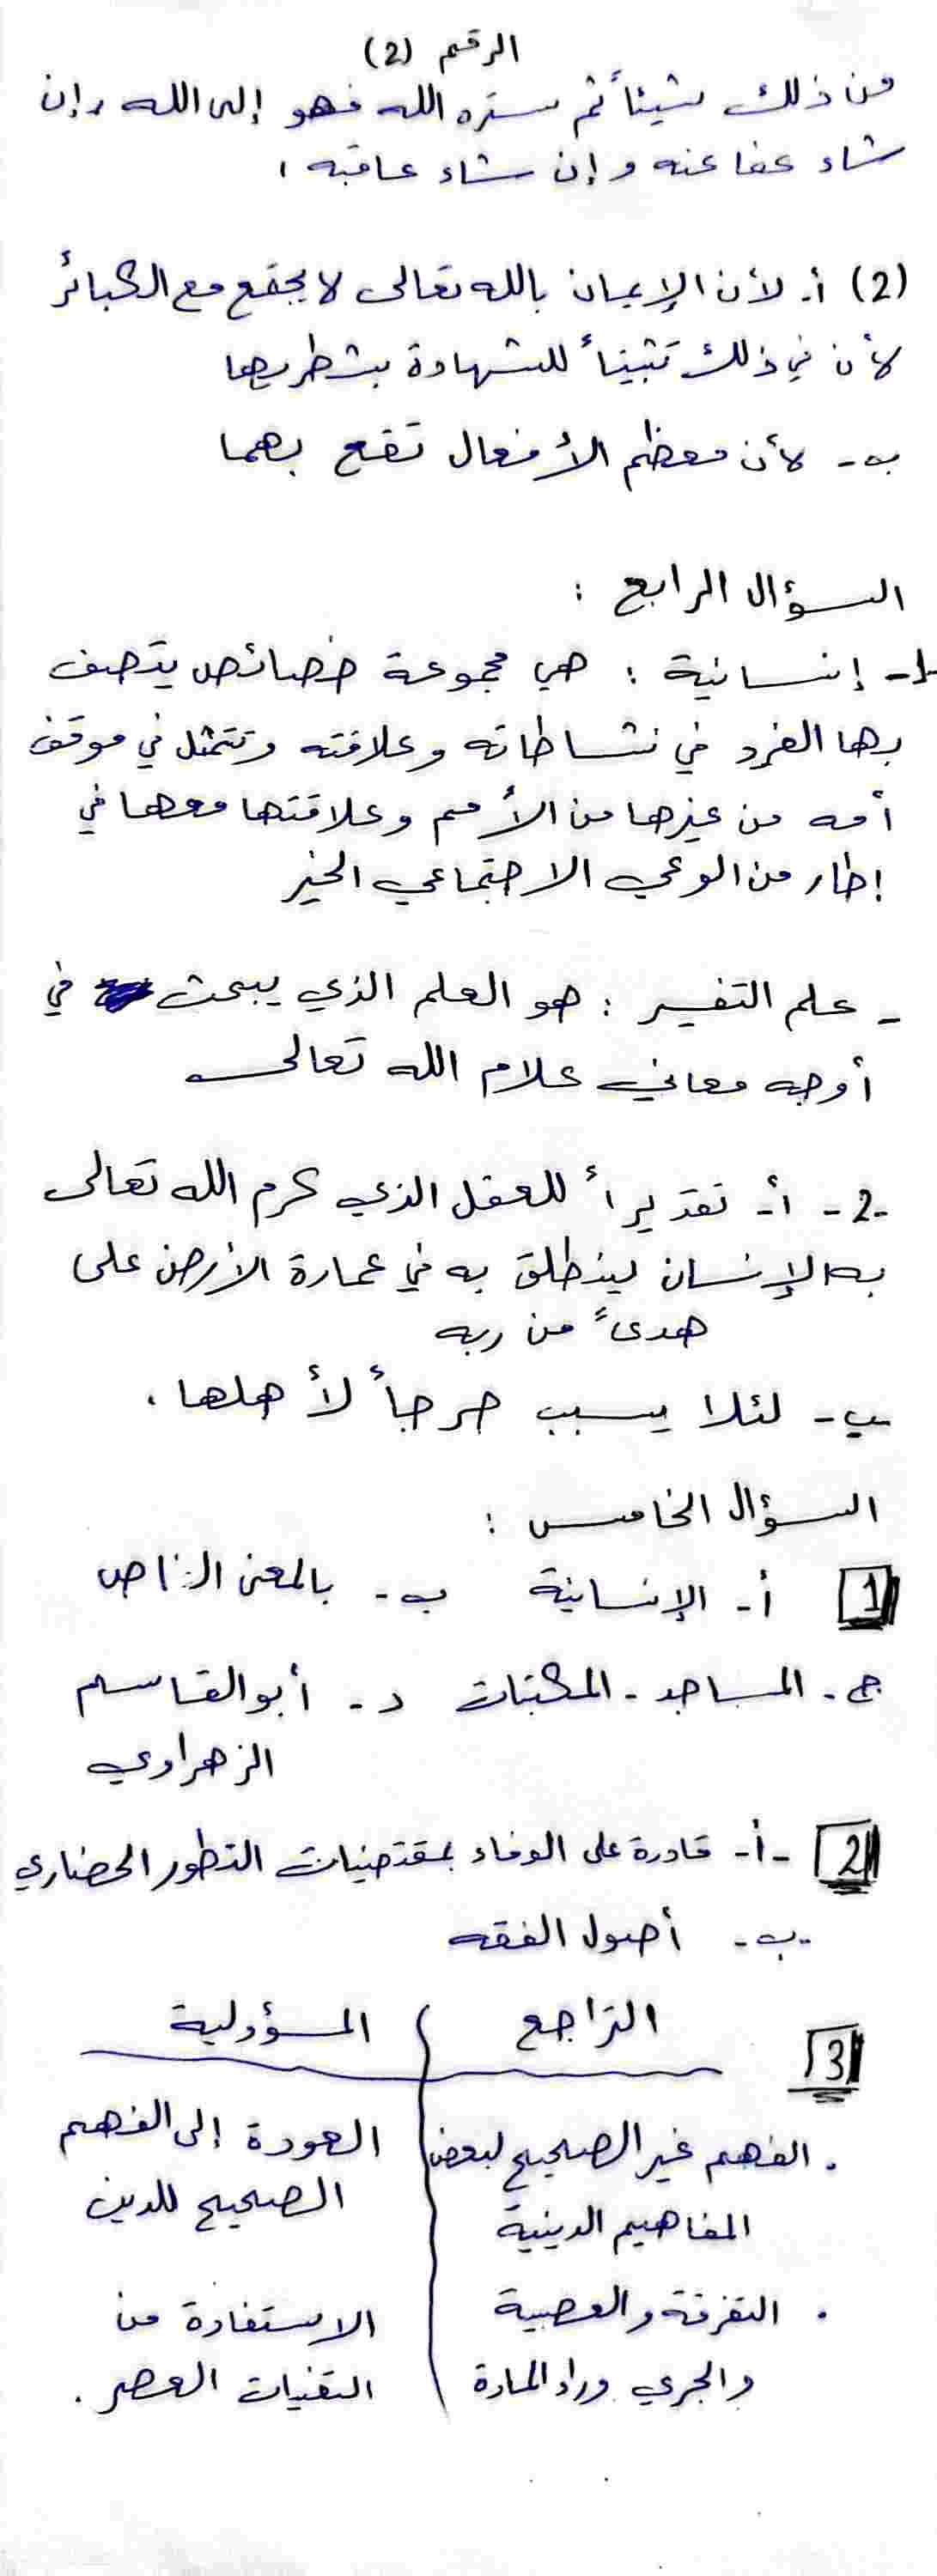 الرقم (2)
من ذلك شيئاً ثم ستره الله فهو إلى الله، إن
شاء عفا عنه وإن شاء عاقبه.
(2) أ. لأن الإيمان بالله تعالى لا يجتمع مع الكبائر
لأن في ذلك تثبيتاً للشهادة بشطريها
ب- لأن معظم الأفعال تقع بهما
السؤال الرابع :
1- إنسانية : هي مجموعة خصائص يتصف
بها الفرد في نشاطاته وعلاقته وتتمثل في موقف
أمه من غيرها من الأمم وعلاقتها معها في
إطار من الوعي الاجتماعي الخير
- علم التفسير : هو العلم الذي يبحث في
أوجه معاني كلام الله تعالى
2- أ- تقديراً للعقل الذي كرم الله تعالى
به الإنسان لينطلق به في عمارة الأرض على
هدىً من ربه
ب- لئلا يسبب حرجاً لأهلها.
السؤال الخامس :
1 أ- الإنسانية ب- بالمعنى الخاص
ج- المساجد - المكتبات د- أبو القاسم
الزهراوي
2 -أ- قادرة على الوفاء بمقتضيات التطور الحضاري
ب- أصول الفقه
3 التراجع المسؤولية
. الفهم غير الصحيح لبعض العودة إلى الفهم
المفاهيم الدينية الصحيح للدين
. التفرقة والعصبية الاستفادة من
والجري وراء المادة التقنيات العصر.